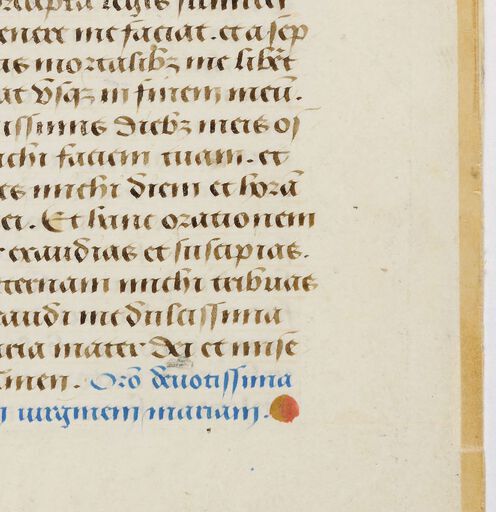 precepta regis summi
venere me faciat. et a sep
mortalibz me libet
at vsqz in finem meū.
issimis diebz meis os
michi faciem tuam. et
es michi diem et horā
ei. Et hanc orationem
exaudias et suscipias.
eternam michi tribuas
audi me dulcissima
aria mater dei et mise
Amen. Orō deuotissima
uirginem mariam.